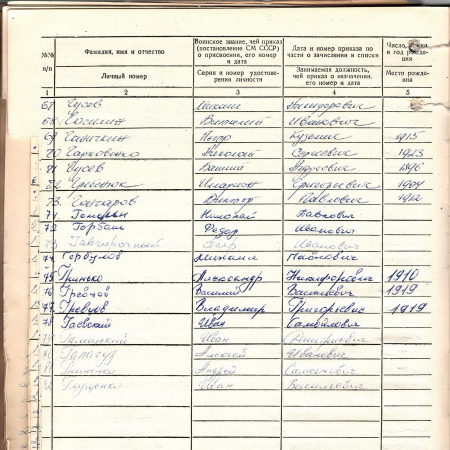 №№ п/п
Фамилия, имя и отчество
Личный номер
Воинское звание, чей приказ (постановление СМ СССР) о присвоении, его номер и дата
Серия и номер удостоверения личности
Дата и номер приказа по части о зачислении в списки
Занимаемая должность, чей приказ о назначении, его номер и дата
Число, и год рожде-
Место рожде- ния
1 2 3 4 5
67 Гусев Михаил Никифорович
68 Виталий Иванович
69 Галичкин Петр Кузьмич 1915
70 Гарковенко Николай Сергеевич 1923
71 Гусев Василий Андреевич 1896
72 Григорюк Илларион Григорьевич 1904
73 Гончаров Виктор Павлович 1922
71 Николай Павлович
72 Горбань Федор Иванович
73 Петр Иванович
74 Горбунов Михаил Павлович
75 Гринько Александр Никифорович 1910
76 Гребнов Василий Васильевич 1919
77 Владимир Григорьевич 1919
78 Гаевский Иван Самойлович
79 Иван Дмитриевич
80 Галагуд Алексей Иванович
81 Гриненко Андрей Самсонович
82 Глущенко Иван Васильевич